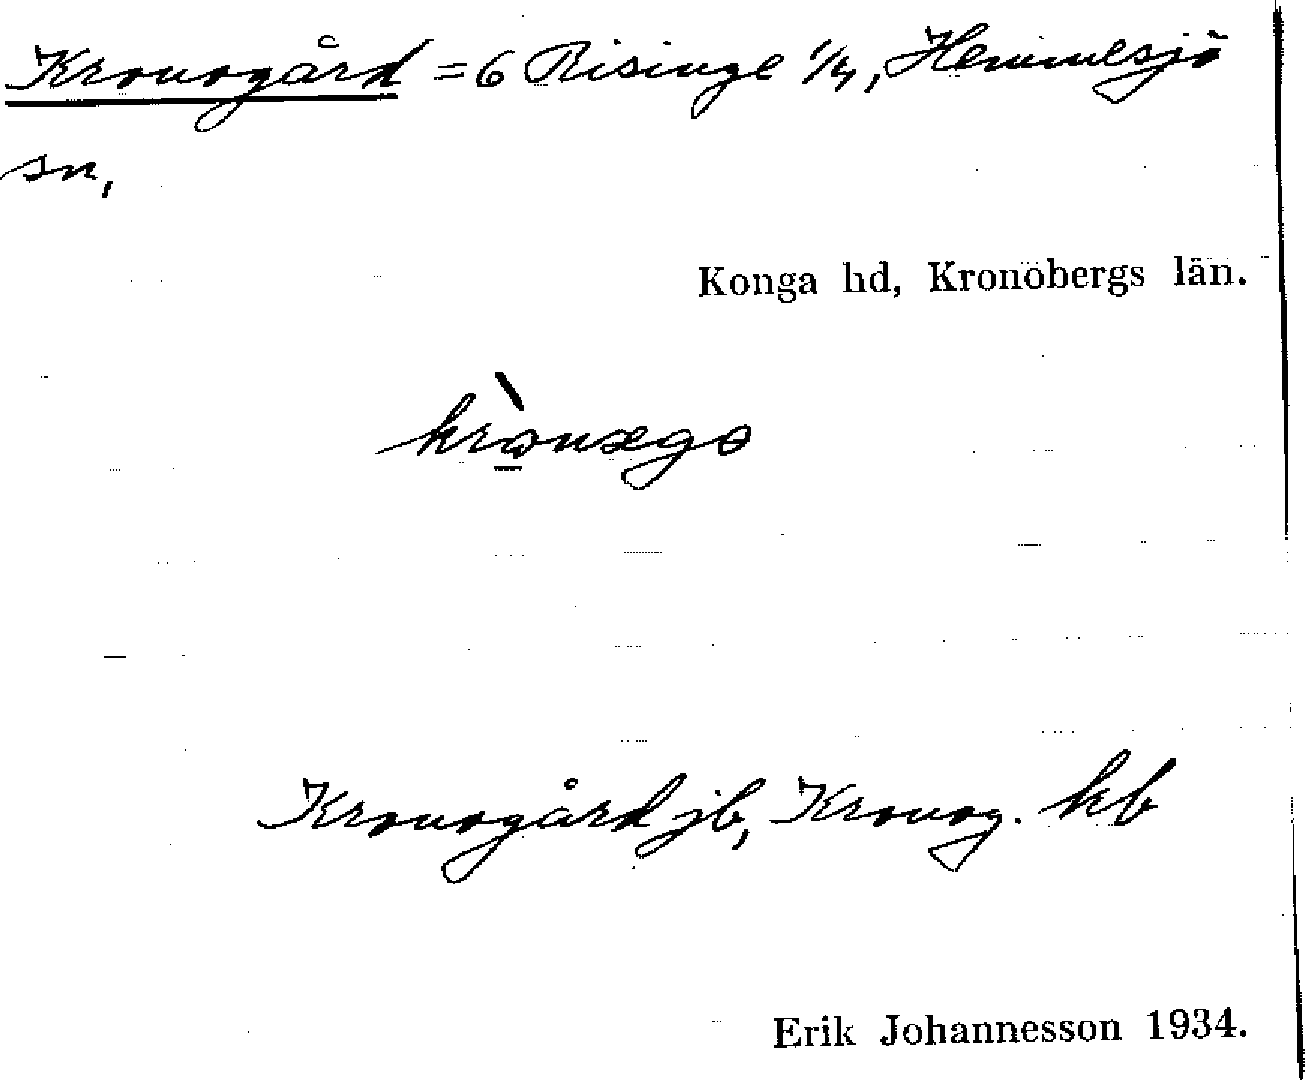 Kronogård = 6 Risinge 1/4, Hemmesjö
sn,
Konga hd, Kronobergs län.
krònægo
Kronogård jb, Kronog. hb
Erik Johannesson 1934.